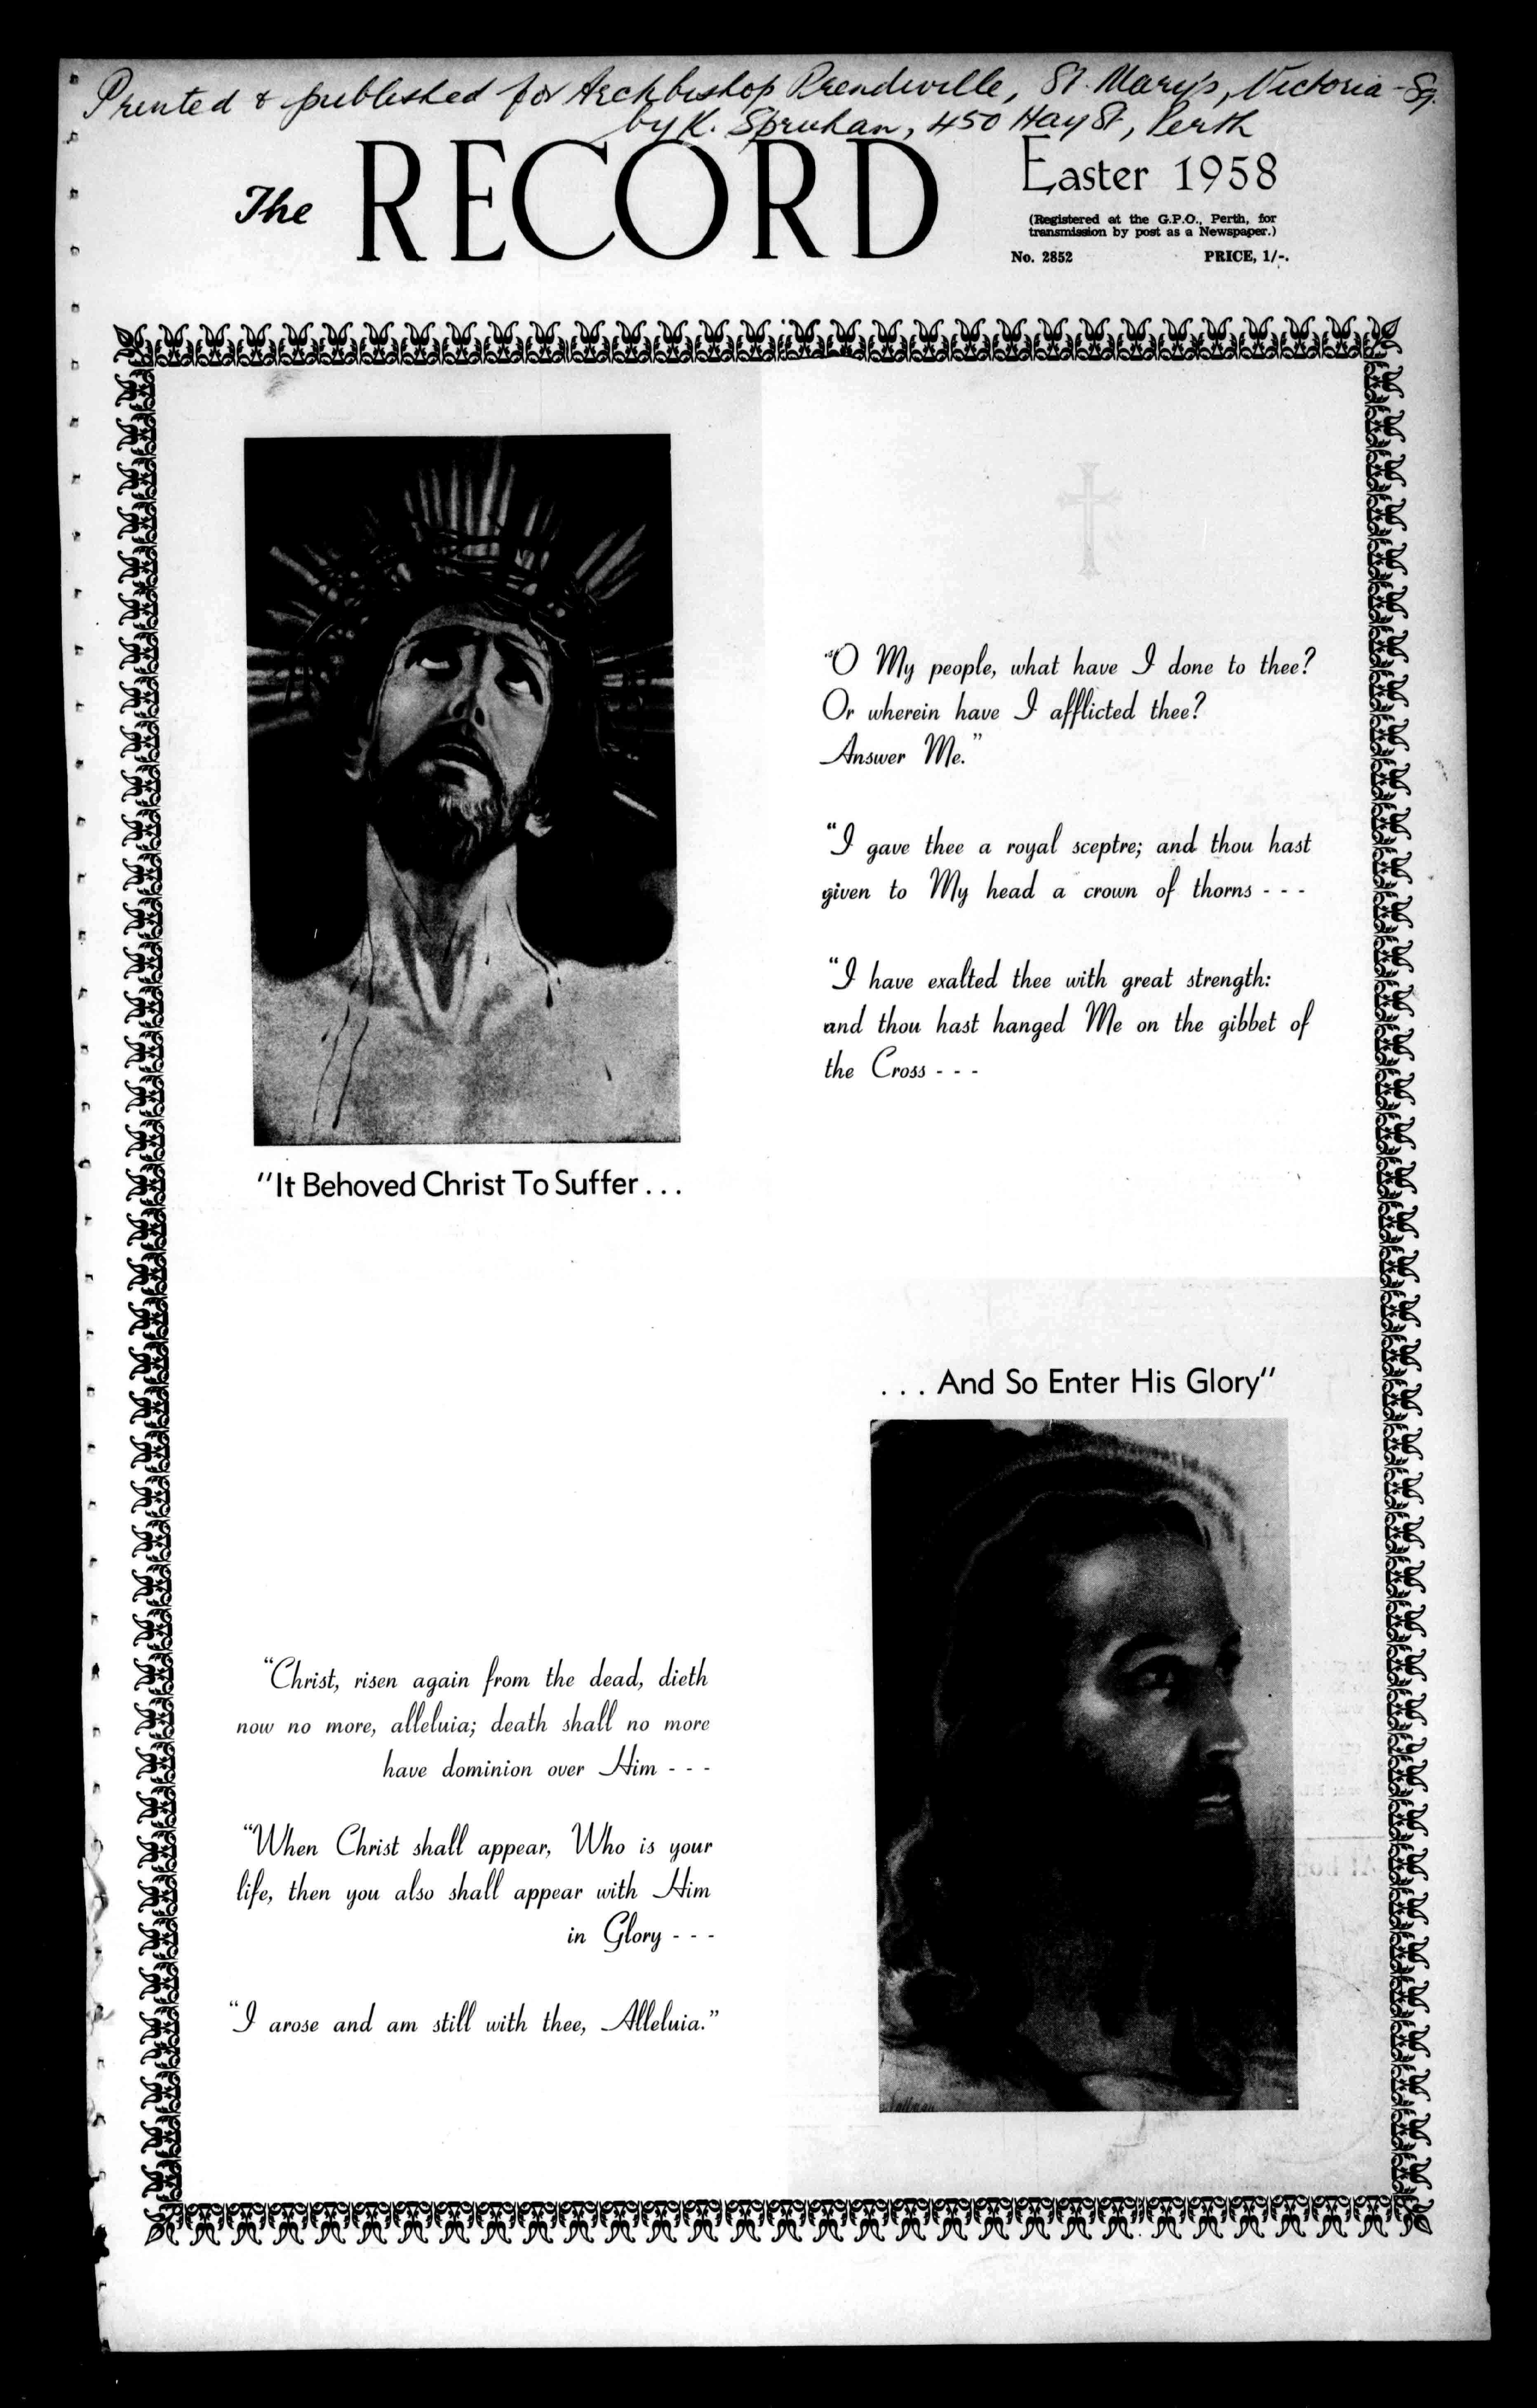 Printed & published for Archbishop Prendiville, St. Mary's, Victoria-Sq.
by K. Spruhan, 450 Hay St, Perth
The RECORD
Easter 1958
(Registered at the G.P.O., Perth, for
transmission by post as a Newspaper.)
No. 2852 PRICE, 1/-.
"O My people, what have I done to thee?
Or wherein have I afflicted thee?
Answer Me."
"I gave thee a royal sceptre; and thou hast
given to My head a crown of thorns - - -
"I have exalted thee with great strength:
and thou hast hanged Me on the gibbet of
the Cross - - -
"It Behoved Christ To Suffer . . .
. . . And So Enter His Glory"
"Christ, risen again from the dead, dieth
now no more, alleluia; death shall no more
have dominion over Him - - -
"When Christ shall appear, Who is your
life, then you also shall appear with Him
in Glory - - -
"I arose and am still with thee, Alleluia."
Sallman